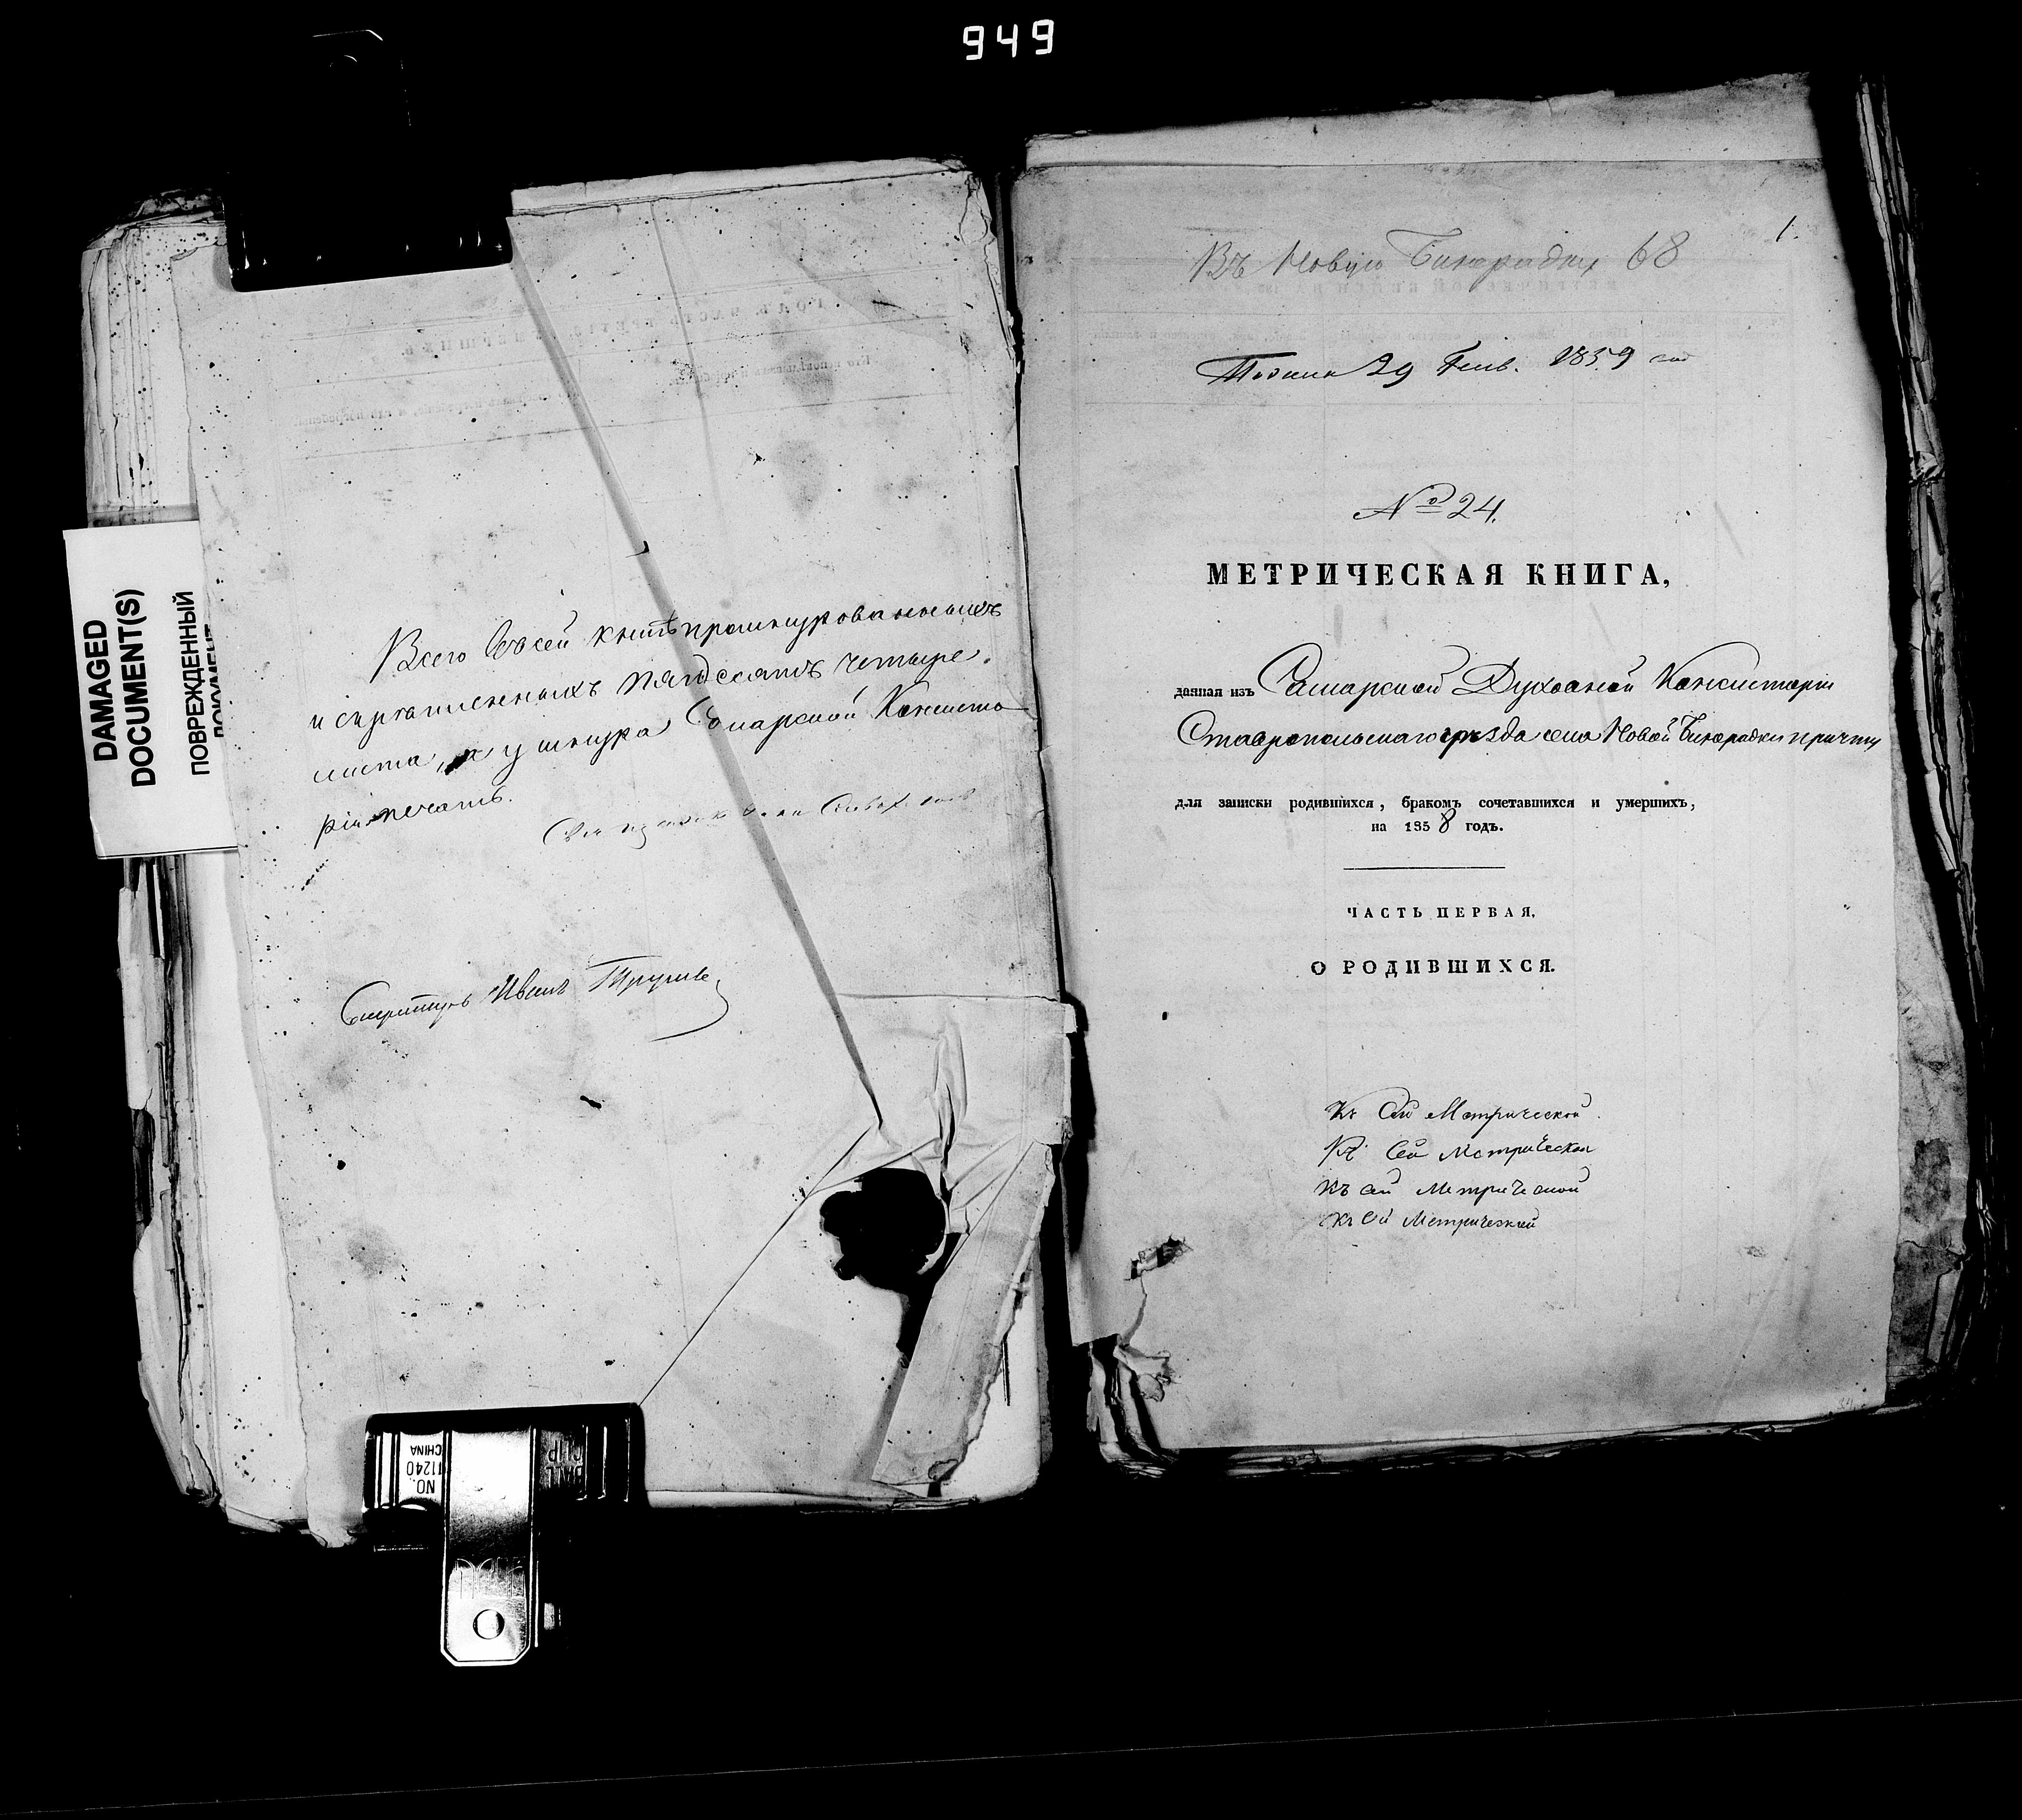 949
DAMAGED
DOCUMENT(S)
ПОВРЕЖДЕННЫЙ
ДОКУМЕНТ
Всего въ сей книгѣ прошнурованныхъ
и скрѣпленныхъ пятдесятъ четыре
листа, а у шнура Самарской Консисто
ріи печать.
Секретарь Иванъ
NO.
11240
CHINA
BALL
CLIP
1.
Въ Новую Бинарадку 68
29 Генв. 1859 года
№ 24.
МЕТРИЧЕСКАЯ КНИГА,
данная изъ Самарской Духовной Консисторіи
Ставропольскаго уѣзда села Новой Бинарадки причту
для записки родившихся, бракомъ сочетавшихся и умершихъ,
на 1858 годъ.
ЧАСТЬ ПЕРВАЯ,
О РОДИВШИХСЯ.
Къ Сей Метрической
Къ Сей Метрической
Къ сей Метрической
Къ Сей Метрической